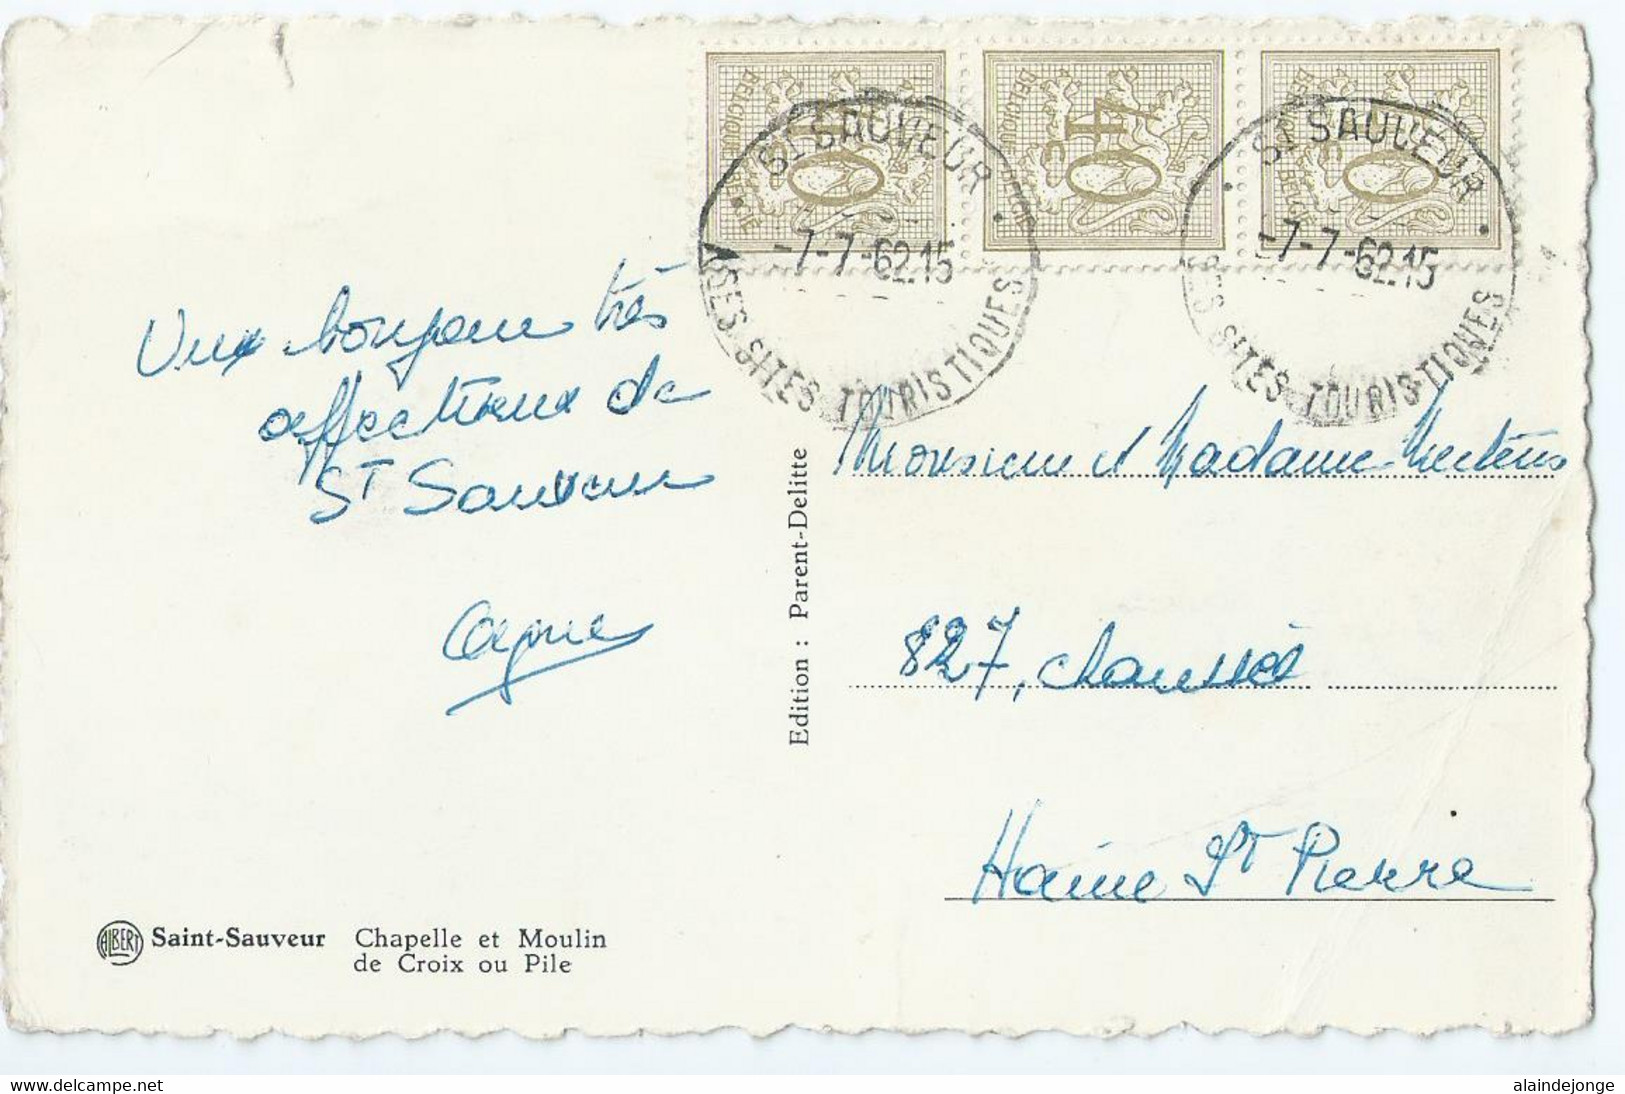 BELGIQUE BELGIE
40 c
BELGIQUE BELGIE
40 c
BELGIQUE BELGIE
40 c
ST SAUVEUR
-7-7-62.15
SES SITES TOURISTIQUES
ST SAUVEUR
-7-7-62.15
SES SITES TOURISTIQUES
bonjour très
affectueux de
ST Sauveur
Monsieur et Madame Mertens
827, chaussée
Haine St Pierre
Edition : Parent-Delitte
ALBERT
Saint-Sauveur Chapelle et Moulin
de Croix ou Pile
www.delcampe.net
alaindejonge